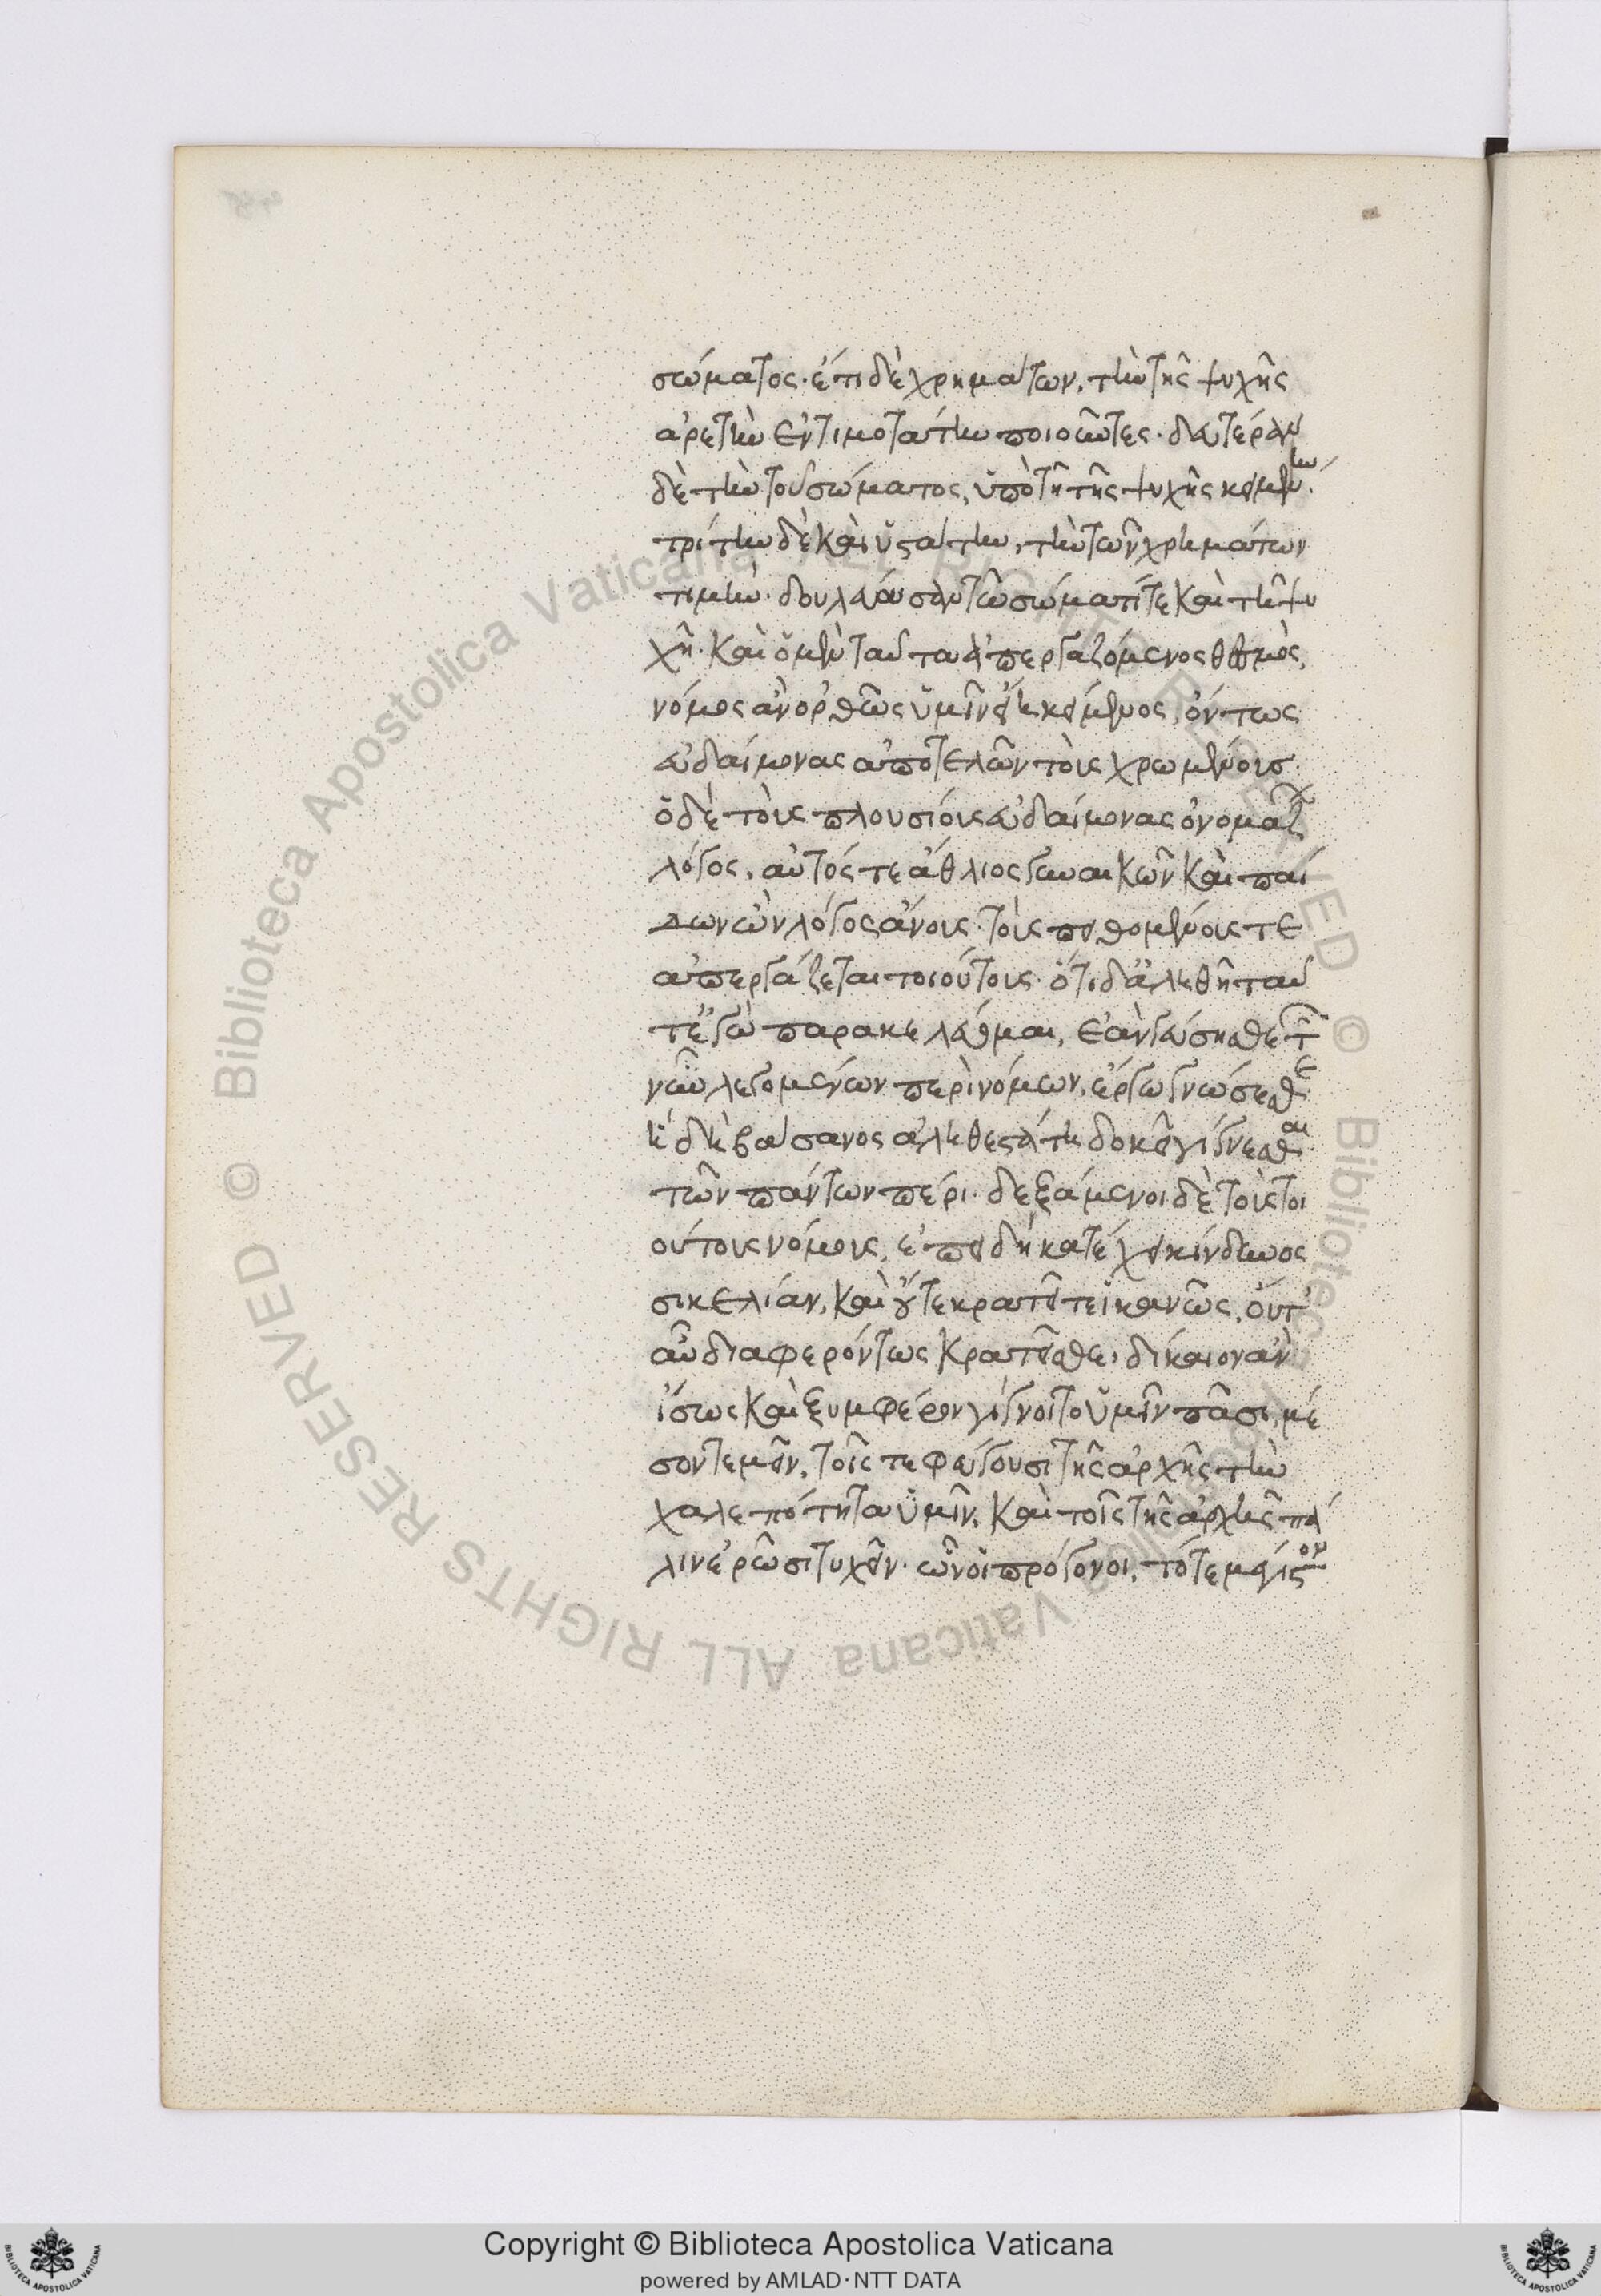 σώματος· ἐπὶ δὲ χρημάτων, τὴν τῆς ψυχῆς
ἀρετὴν ἐντιμοτάτην ποιοῦντες· δευτέραν
δὲ τὴν τοῦ σώματος, ὑπὸ τῆ τῆς ψυχῆς κειμένην·
τρίτην δὲ καὶ ὑστάτην, τὴν τῶν χρημάτων
τιμὴν· δουλεύουσαν τῶ σώματί τε καὶ τῆ ψυ
χῆ· καὶ ὁ μὲν ταῦτα ἀπεργαζόμενος θεσμὸς,
νόμος ἂν ὀρθῶς ὑμῖν εἴη κείμενος, ὄντως
εὐδαίμονας ἀποτελῶν τοὺς χρωμένους·
ὁ δὲ τοὺς πλουσίους εὐδαίμονας ὀνομάζων
λόγος, αὐτός τε ἄθλιος γυναικῶν καὶ παί
δων ὢν λόγος ἄνους· τοὺς πειθομένους τε
ἀπεργάζεται τοιούτους· ὅτι δ' ἀληθῆ ταῦ
τ' ἐγὼ παρακελεύομαι, ἐὰν γεύσησθε τῶν
νῦν λεγομένων περὶ νόμων, ἔργω γνώσεσθε
ἣ δὴ βάσανος ἀληθεστάτη δοκεῖ γίγνεσθαι
τῶν πάντων πέρι· δεξάμενοι δὲ τοὺς τοι
ούτους νόμους, ἐπειδὴ κατέχει κίνδυνος
σικελίαν, καὶ οὔτε κρατεῖτε ἱκανῶς, οὔτ'
αὖ διαφερόντως κρατεῖσθε, δίκαιον ἂν
ἴσως καὶ ξυμφέρον γίγνοιτο ὑμῖν πᾶσι, μέ
σον τεμεῖν, τοῖς τε φεύγουσι τῆς ἀρχῆς τὴν
χαλεπότητα ὑμῖν, καὶ τοῖς τῆς ἀρχῆς πά
λιν ἐρῶσι τυχεῖν· ὧν οἱ πρόγονοι, τότε μέγιστον